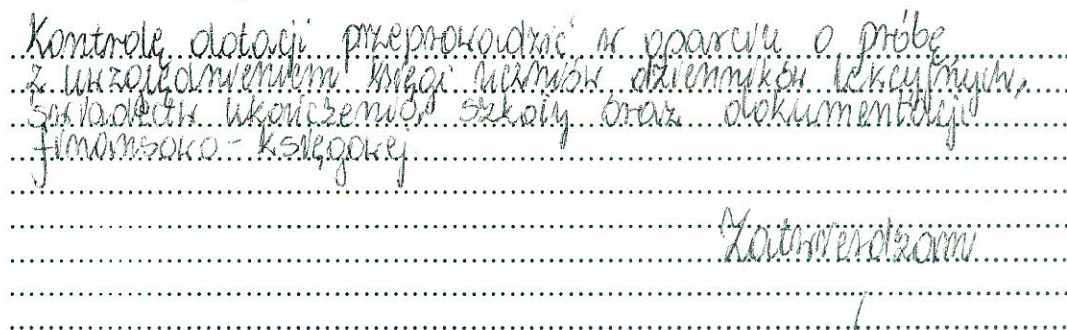 Kontrolę dotacji przeprowadzić w oparciu o próbę
z uwzględnieniem księgi uczniów, dzienników lekcyjnych,
świadectw ukończenia szkoły oraz dokumentacji
finansowo - księgowej
Zatwierdzam